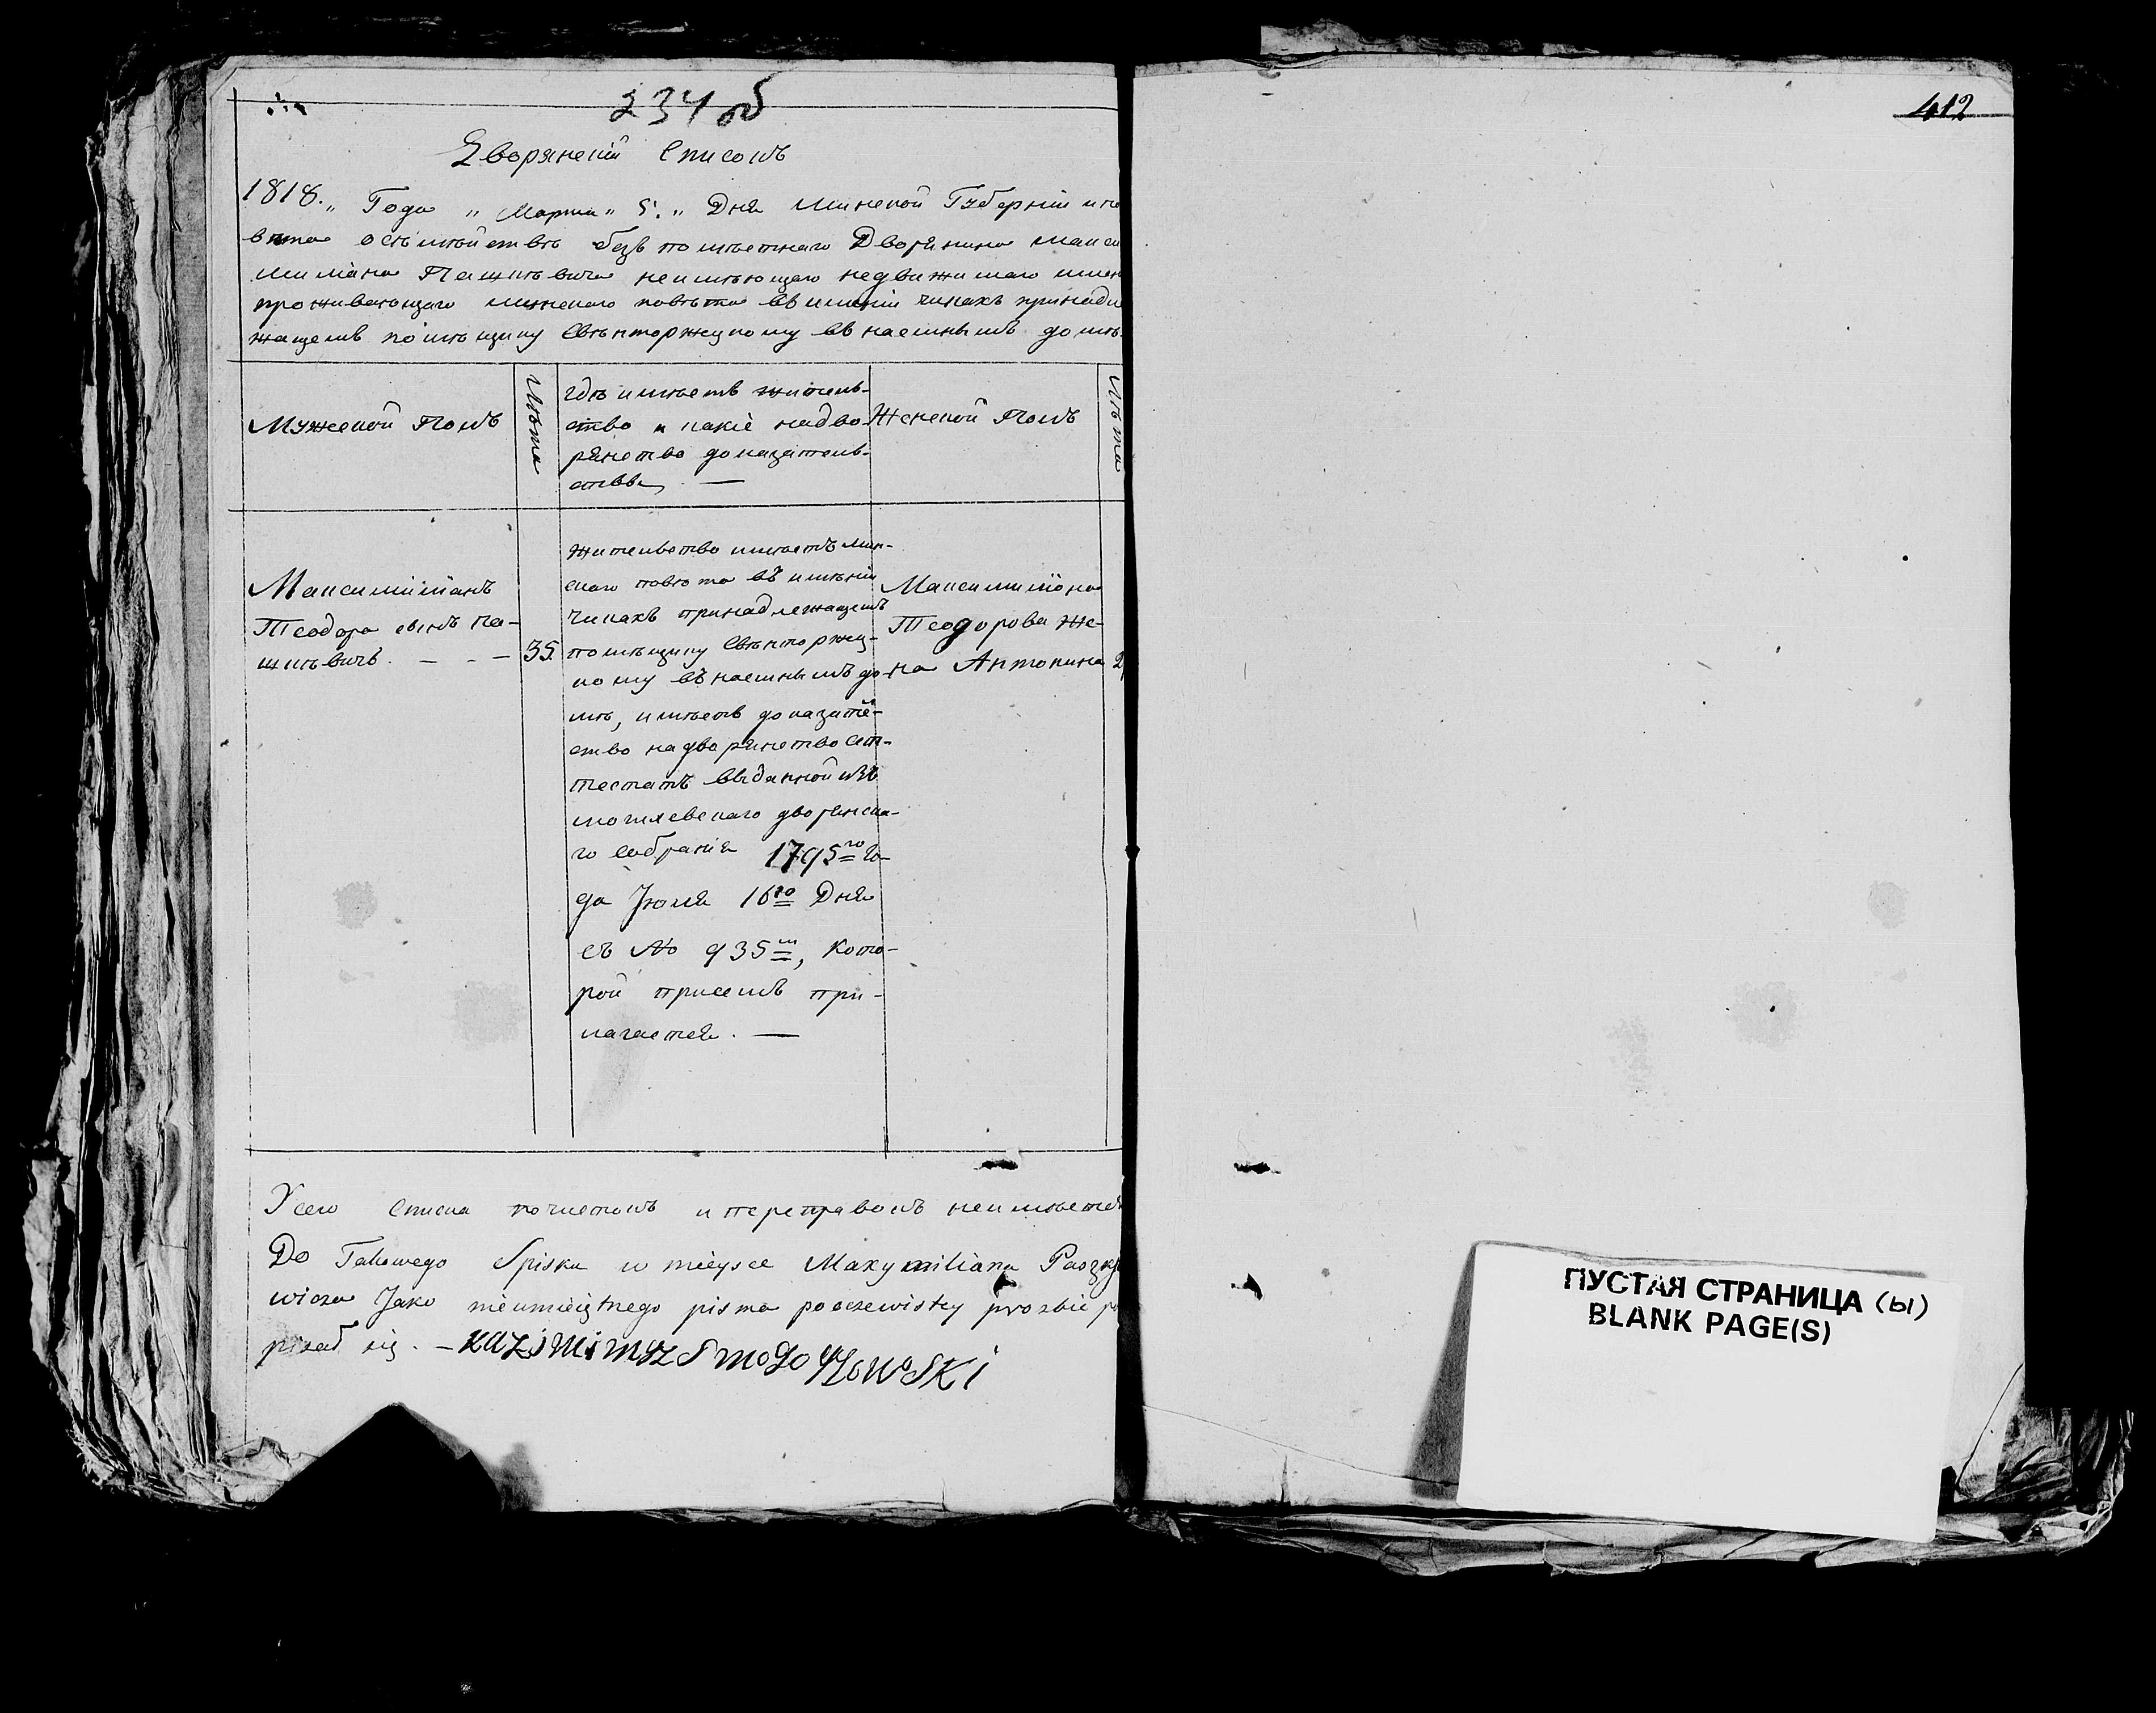 234 об
Дворянскій Списокъ
1818. „ Года „ Марта „ 5. „ Дня Минской Губерніи и по
вета о семействѣ безъ поместнаго Дворянина Макси
миліана Пашкѣвича неимѣющаго недвижимаго имен
проживающаго минскаго повѣта въ имѣніи чикахъ принадле
жащемъ помѣщику Свѣнторжецкому въ наемнымъ домѣ.
Мужеской Полъ
Лѣта
гдѣ имѣетъ житель-
ство и какіе на дво-
рянство доказатель-
ствы —
Женской Полъ
Лѣта
Максиміліанъ
Теодора сынъ Па-
шкѣвичъ. — - —
35.
жительство имѣетъ мин-
скаго повѣта въ имѣніи
чикахъ принадлежащемъ
помѣщику Свѣнторжец-
кому въ наемнымъ до-
мѣ, имѣетъ доказате-
ство на дворянство ат-
тестатъ выданной изъ
могилевскаго дворянска-
го собранія 1795го го-
да Іюля 16го Дня
съ № 935м, кото-
рой присемъ при-
лагается. —
Максимиліона
Теодорова же-
на Антонина
2
У сего списка почистокъ и переправокъ неимѣется
Do Takowego Spisku w mieysce Maxymiliana Paszk
wicza Jako nieumieiętnego pisma po oczewistey prozbie p
pisał się. — Kazimimyrz Smogo
412
ПУСТАЯ СТРАНИЦА (Ы)
BLANK PAGE(S)